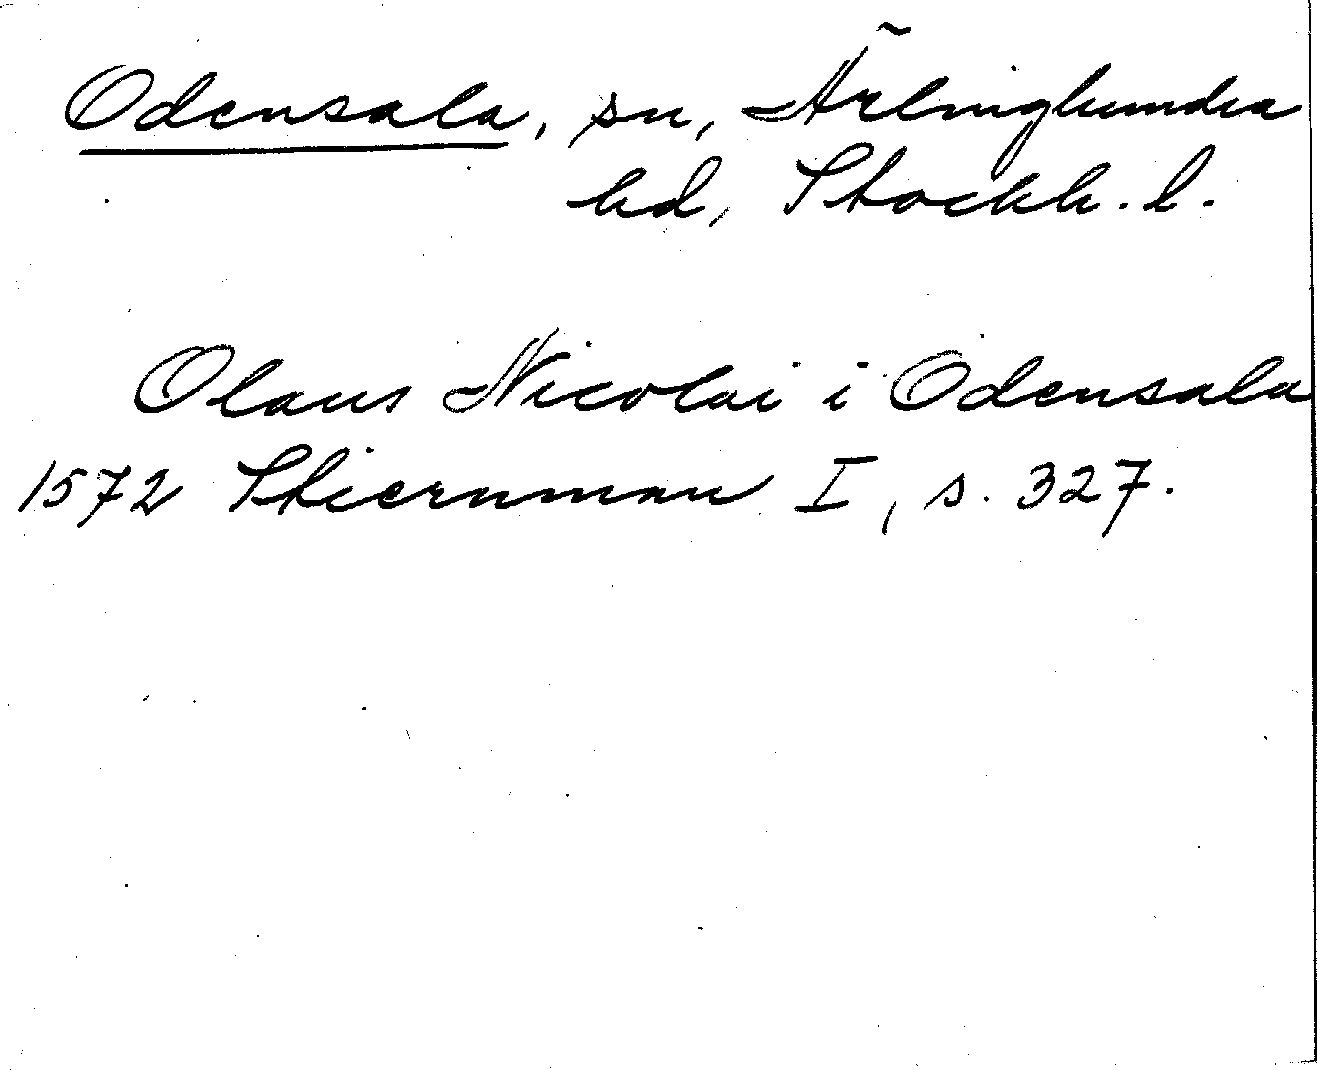 Odensala, sn, Ärlinghundra
hd, Stockh. l.
Olaus Nicolai i Odensala
1572 Stiernman I, s. 327.